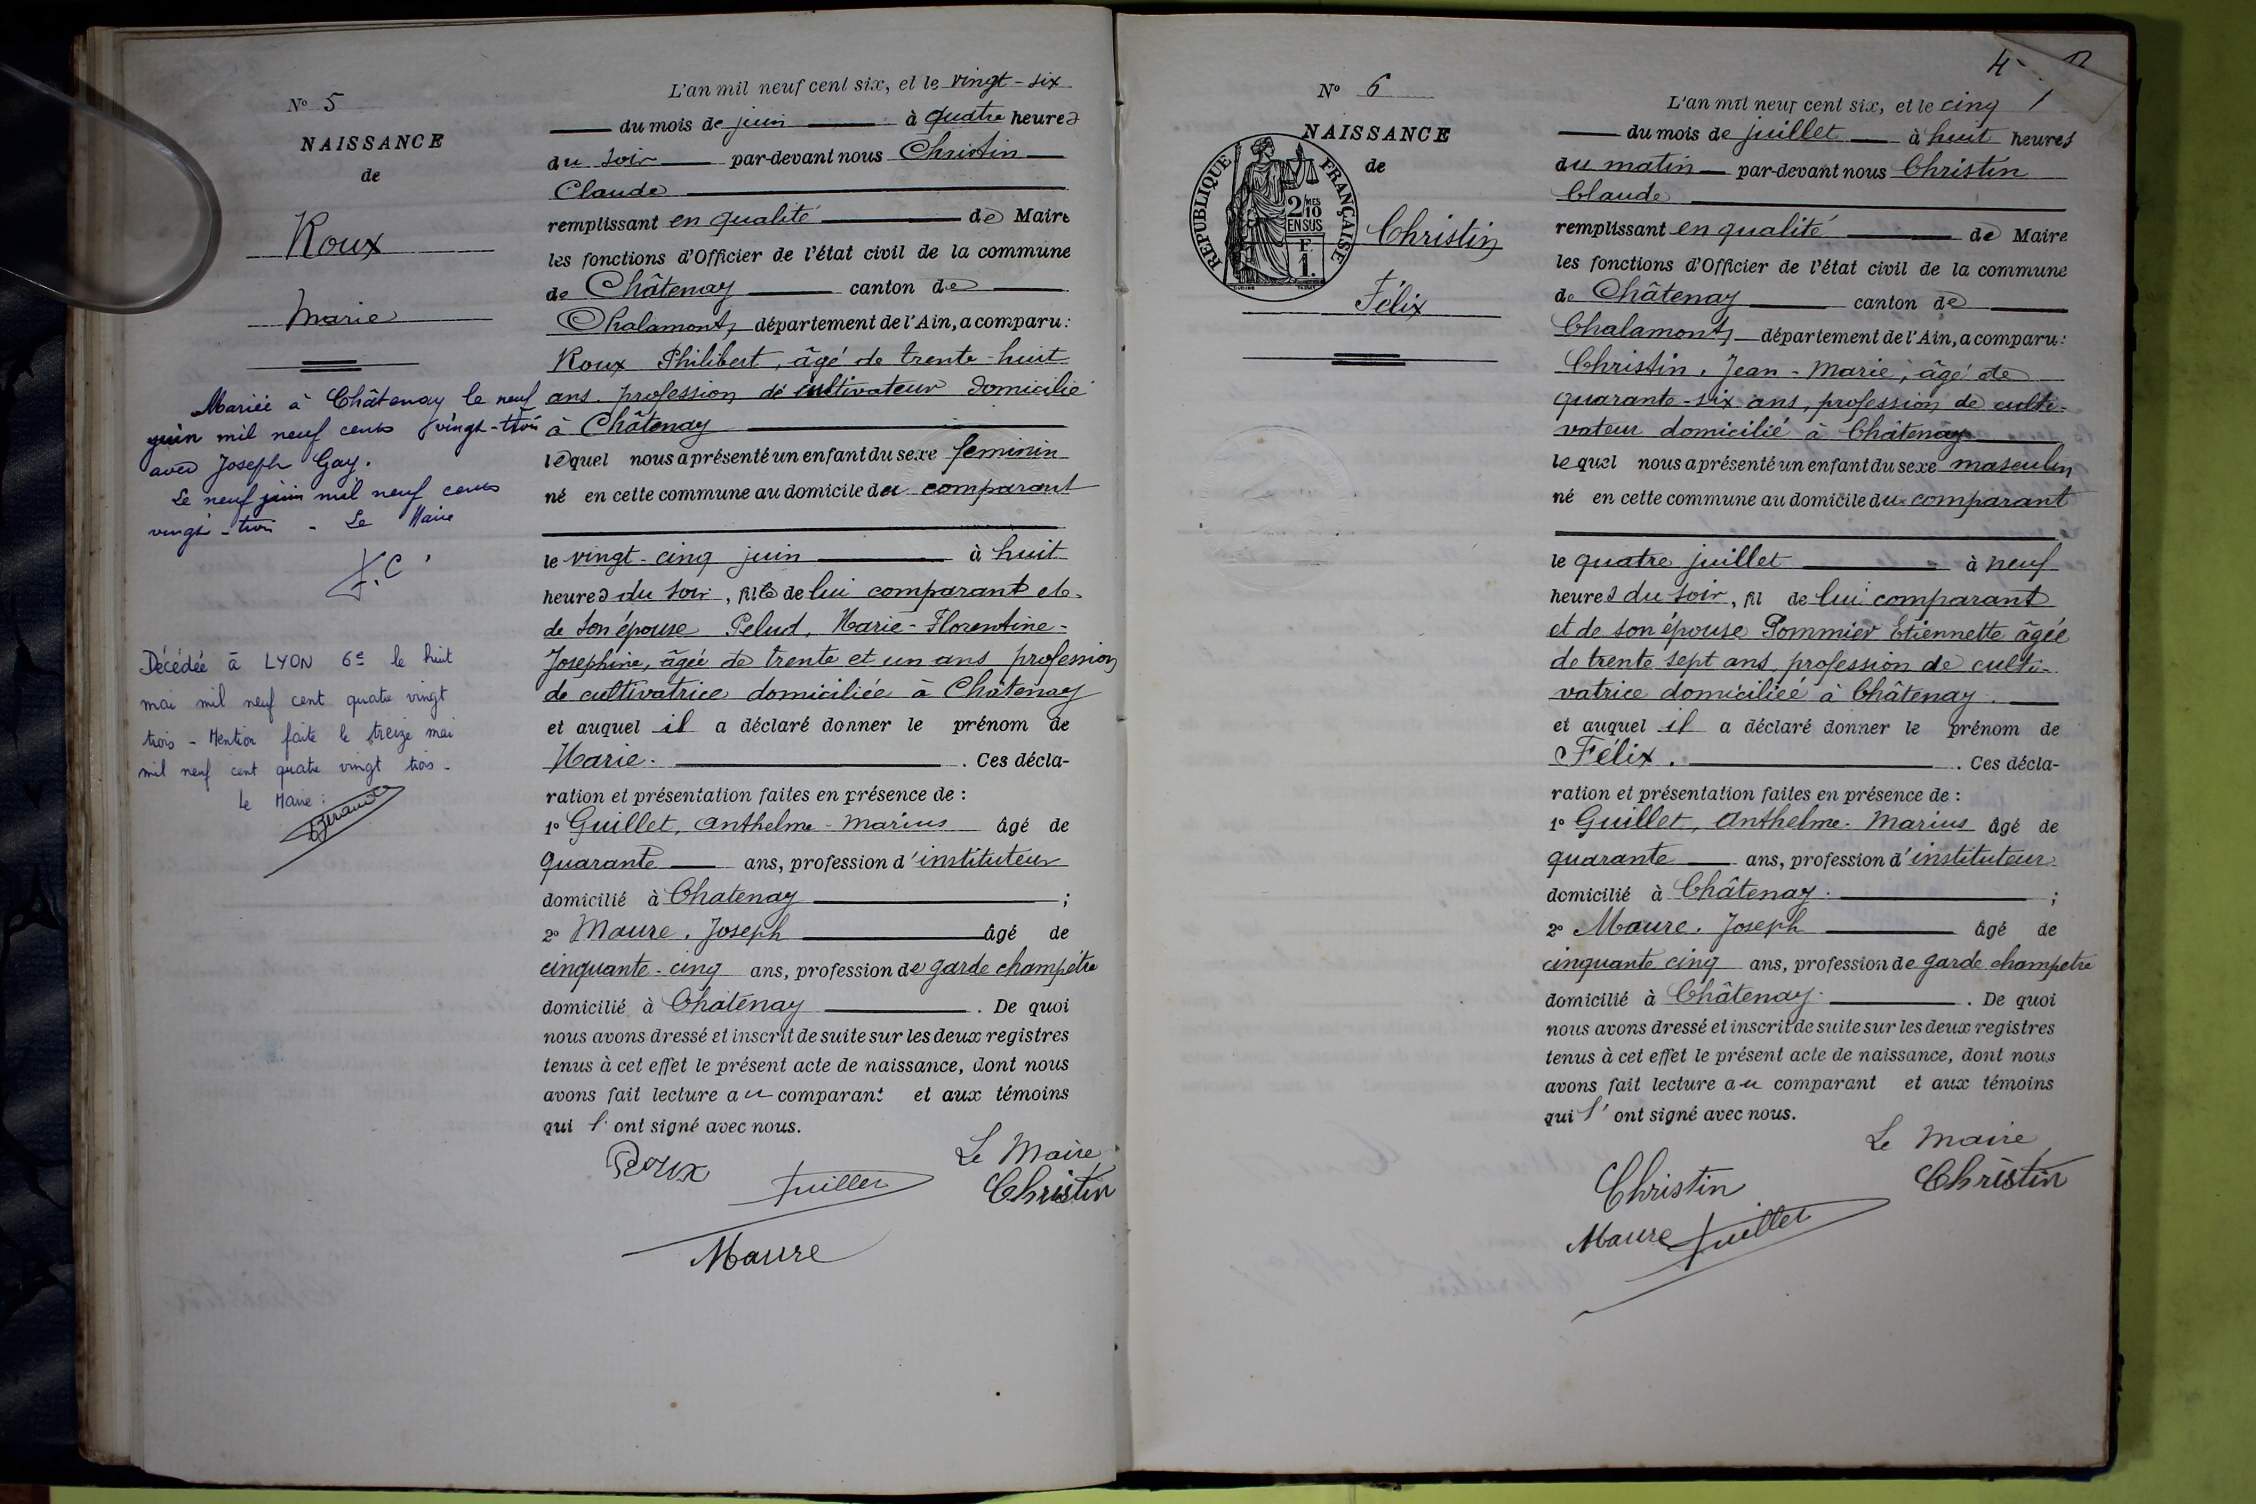 N° 5
NAISSANCE
de
Roux
Marie
Mariée à Châtenay le neuf
juin mil neuf cents vingt-trois
avec Joseph Gay.
Le neuf juin mil neuf cents
vingt-trois - Le Maire
F.C
Décédée à LYON 6e le huit
mai mil neuf cent quatre vingt
trois - Mention faite le treize mai
mil neuf cent quatre vingt trois -
Le Maire :
L'an mil neuf cent six, et le vingt-six
du mois de juin à quatre heures
du soir par-devant nous Christin
Claude
remplissant en qualité de Maire
les fonctions d'Officier de l'état civil de la commune
de Châtenay canton de
Chalamont, département de l'Ain, a comparu :
Roux Philibert, âgé de trente-huit
ans, profession de cultivateur domicilié
à Châtenay
lequel nous a présenté un enfant du sexe feminin
né en cette commune au domicile du comparant
le vingt-cinq juin à huit
heures du soir, fille de lui comparant et
de son épouse Pelud, Marie-Florentine-
Josephine, âgée de trente et un ans profession
de cultivatrice domiciliée à Châtenay
et auquel il a déclaré donner le prénom de
Marie. . Ces décla-
ration et présentation faites en présence de :
1° Guillet, Anthelme-Marius âgé de
quarante ans, profession d'instituteur
domicilié à Chatenay ;
2° Maure, Joseph âgé de
cinquante-cinq ans, profession de garde champêtre
domicilié à Châtenay . De quoi
nous avons dressé et inscrit de suite sur les deux registres
tenus à cet effet le présent acte de naissance, dont nous
avons fait lecture au comparant et aux témoins
qui l'ont signé avec nous.
Le Maire
Roux Guillet Christin
Maure
4
N° 6
NAISSANCE
de
REPUBLIQUE FRANÇAISE
2/10 MES
EN SUS
F.
1.
Christin
Félix
L'an mil neuf cent six, et le cinq
du mois de juillet à huit heures
du matin par-devant nous Christin
Claude
remplissant en qualité de Maire
les fonctions d'Officier de l'état civil de la commune
de Châtenay canton de
Chalamont, département de l'Ain, a comparu :
Christin, Jean-Marie, âgé de
quarante-six ans, profession de culti-
vateur domicilié à Châtenay
lequel nous a présenté un enfant du sexe masculin
né en cette commune au domicile du comparant
le quatre juillet à neuf
heures du soir, fil de lui comparant
et de son épouse Pommier Etiennette âgée
de trente sept ans, profession de culti-
vatrice domiciliée à Châtenay.
et auquel il a déclaré donner le prénom de
Félix. . Ces décla-
ration et présentation faites en présence de :
1° Guillet, Anthelme-Marius âgé de
quarante ans, profession d'instituteur
domicilié à Châtenay. ;
2° Maure, Joseph âgé de
cinquante cinq ans, profession de garde champetre
domicilié à Châtenay. . De quoi
nous avons dressé et inscrit de suite sur les deux registres
tenus à cet effet le présent acte de naissance, dont nous
avons fait lecture au comparant et aux témoins
qui l'ont signé avec nous.
Le Maire
Christin Christin
Maure Guillet